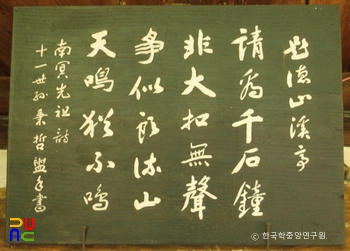 題德山溪亭
請看千石鐘
非大扣無聲
爭似頭流山
天鳴猶不鳴
南冥先祖詩
十一世孫秉哲盥手書
© 한국학중앙연구원